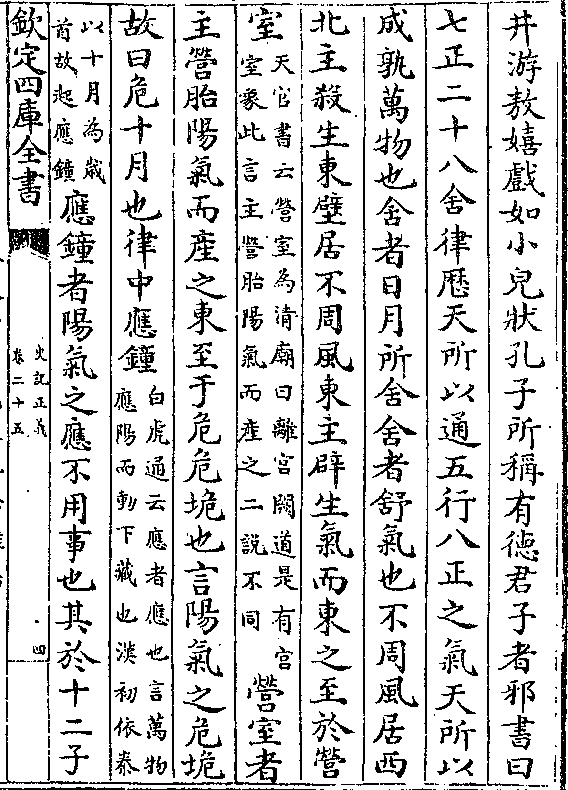 井游敖嬉戲如小兒狀孔子所稱有德君子者邪書曰
七正二十八舍律厯天所以通五行八正之氣天所以
成孰萬物也舍者日月所舍舍者舒氣也不周風居西
北主殺生東壁居不周風東主辟生氣而東之至於營
室
天官書云營室為清廟曰離宮閣道是有宫
室象此言主營胎陽氣而産之二說不同
營室者
主營胎陽氣而産之東至于危危垝也言陽氣之危垝
故曰危十月也律中應鐘
白虎通云應者應也言萬物
應陽而動下藏也漢初依秦
以十月為歳
首故起應鐘
應鐘者陽氣之應不用事也其於十二子
欽定四庫全書
史記正義
卷二十五
四